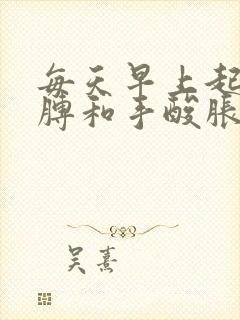 每天早上起
膊和手酸胀
吴熹